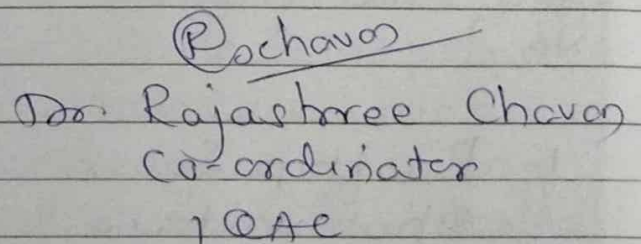 Rochavan
Dr. Rajashree Chavan
Co-ordinator
IQAC